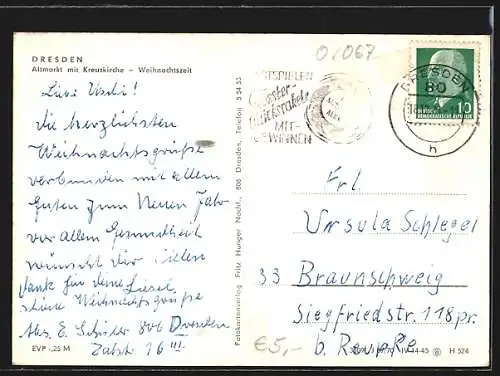 DRESDEN
Altmarkt mit Kreuzkirche – Weihnachtszeit
Liebe Uschi!
die herzlichsten
Weihnachtsgrüße
verbunden mit allem
Guten zum Neuen Jahr
vor allem Gesundheit
wünscht Dir
dank für deine
Weihnachtsgrüße
Abs. E. Schüster 806 Dresden
16 III.
EVP -,25 M
Fotokartenverlag Fritz Hunger Nachf., 806 Dresden, Telefon 5 54 53
0/067
MITSPIELEN
MIT-
GEWINNEN
DRESDEN
80
h
10
DEMOKRATISCHE REPUBLIK
Frl.
Ursula Schlegel
33 Braunschweig
Siegfriedstr. 118 pr.
b. Reupke
€5,-
IV-14-45
H 524